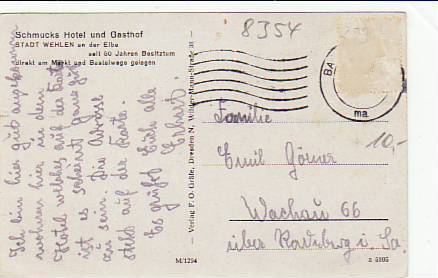 8354
Schmucks Hotel und Gasthof
STADT WEHLEN an der Elbe
seit 50 Jahren Besitztum
direkt am Markt und Basteiwege gelegen
Ich bin hier gut angekommen
wohnen hier in dem
Hotel welches auf der Karte
ist es scheint ganz gut
zu sein. Die Adresse
steht auf der Karte.
Es grüßt Euch alle
Erhart.
Verlag F. O. Gräfe, Dresden N, Wilder-Mann-Straße 31
M/1294
BA
ma
10,-
Familie
Emil Görner
Wachau 66
über Radeberg i. Sa.